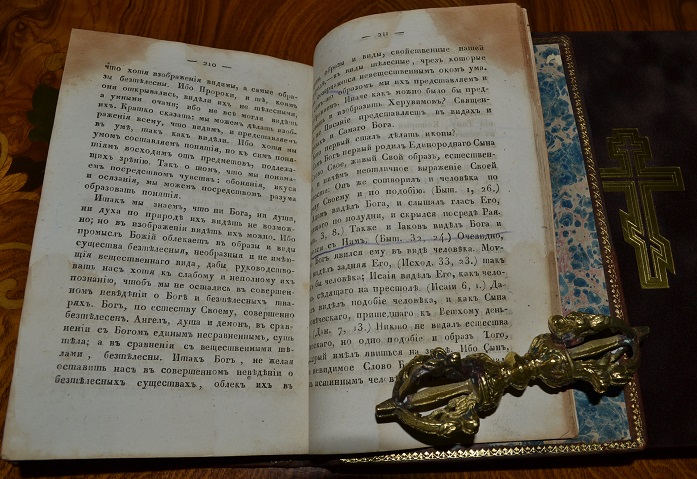 — 210 —
что хотя изображенія видимы, а самые обра-
зы безтѣлесны. Ибо Пророки, и тѣ, коимъ
они открывались, видѣли ихъ не тѣлесными,
а умными очами; ибо не всѣ могли видѣть
ихъ. Кратко сказать: мы можемъ дѣлать изоб-
раженія всему, что видимъ, и представляемъ
въ умѣ, такъ какъ видѣли. Ибо хотя мы
умомъ составляемъ понятія, но къ симъ поня-
тіямъ восходимъ отъ предметовъ, подлежа-
щихъ зрѣнію. Такъ о томъ, что мы понима-
емъ посредствомъ чувствъ: обонянія, вкуса
и осязанія, мы можемъ посредствомъ разума
образовать понятія.
Итакъ мы знаемъ, что ни Бога, ни души,
ни духа по природѣ ихъ видѣть не возмож-
но; но въ изображеніи видѣть ихъ можно. Ибо
промыслъ Божій облекаетъ въ образы и виды
существа безтѣлесныя, необразныя и не имѣю-
щія вещественнаго вида, дабы руководство-
вать насъ хотя къ слабому и неполному ихъ
познанію, чтобъ мы не остались въ совершен-
номъ невѣдѣніи о Богѣ и безтѣлесныхъ тва-
ряхъ. Богъ, по естеству Своему, совершенно
безтѣлесенъ. Ангелъ, душа и демонъ, въ срав-
неніи съ Богомъ единымъ несравненнымъ, суть
тѣла; а въ сравненіи съ вещественными тѣ-
лами, безтѣлесны. Итакъ Богъ, не желая
оставить насъ въ совершенномъ невѣдѣніи о
безтѣлесныхъ существахъ, облекъ ихъ въ
— 211 —
образы и виды, свойственные нашей
въ виды тѣлесные, чрез которые
невещественнымъ окомъ ума,
образомъ мы ихъ представляемъ и
Иначе какъ можно было бы пред-
и изобразить Херувимовъ? Священ-
Писаніе представляетъ въ видахъ и
и Самаго Бога.
первый сталъ дѣлать иконы?
Богъ первый родилъ Единороднаго Сына
Свое, живый Свой образъ, естествен-
неотличное выраженіе Своей
Онъ же сотворилъ и человѣка по
Своему и по подобію. (Быт. 1, 26.)
видѣлъ Бога, и слышалъ гласъ Его,
по полудни, и скрылся посредѣ Рая.
3, 8.) Также и Іаковъ видѣлъ Бога и
съ Нимъ. (Быт. 32, 24.) Очевидно,
Богъ явился ему въ видѣ человѣка. Мои-
видѣлъ задняя Его, (Исход. 33, 23.) какъ
бы человѣка; Исаія видѣлъ Его, какъ чело-
сѣдящаго на престолѣ. (Исаіи 6, 1.)
видѣлъ подобіе человѣка, и какъ Сына
пришедшаго къ Ветхому день-
(Дан. 7, 13.) Никто не видалъ естества
но одно подобіе и образъ Того,
имѣлъ явиться на землѣ. Ибо Сынъ
невидимое Слово
истиннымъ чел